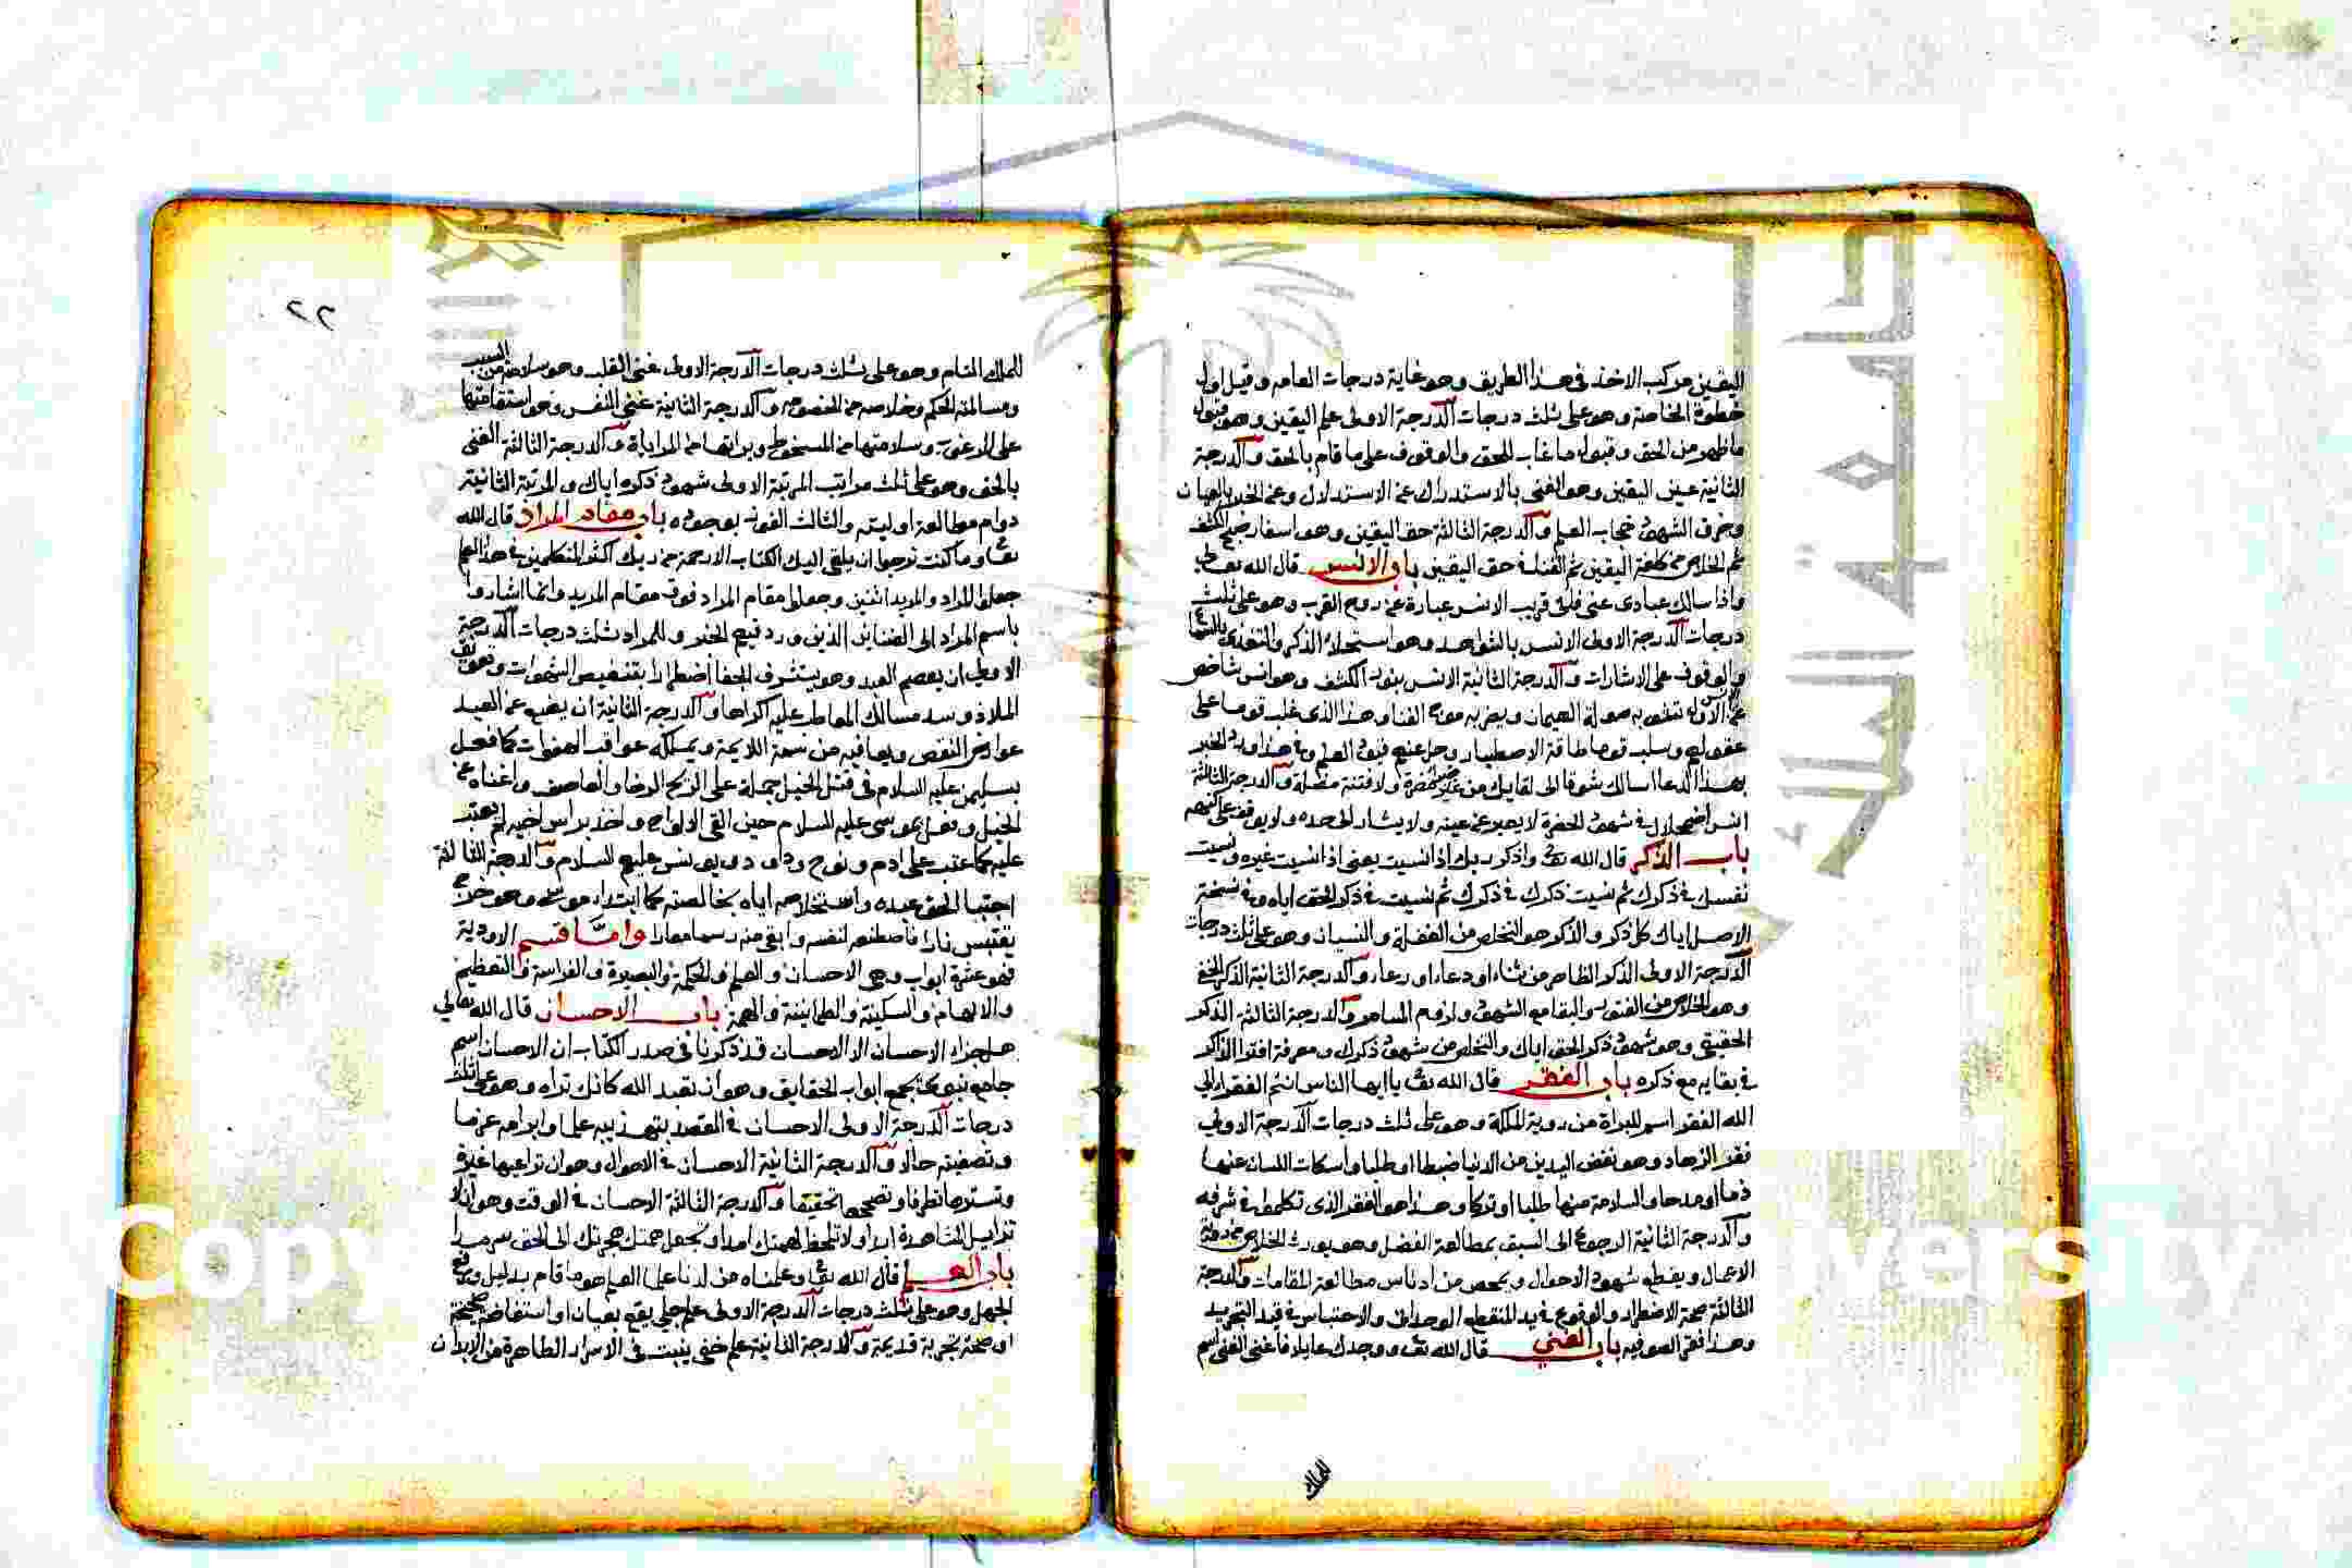 اليقين مركب الاخذ في هذا الطريق وهو غاية درجات العامه وقيل اول
خطوة الخاصة وهو على ثلث درجات الدرجة الاولى علم اليقين وهو قبول
ما ظهر من الحق وقبول ما غاب للحق والوقوف على ما قام بالحق والدرجة
الثانية عين اليقين وهو الغنى بالاستدراك عن الاستدلال وعن الخبر بالعيان
وخرق الشهود حجاب العلم والدرجة الثالثة حق اليقين وهو اسفار صبح الكشف
ثم الخلاص من كلفة اليقين ثم الفناء في حق اليقين باب الانس قال الله تعالى
واذا سالك عبادى عنى فانى قريب الانس عبارة عن روح القرب وهو على ثلث
درجات الدرجة الاولى الانس بالشواهد وهو استحلاء الذكر والتغذي بالسماع
والوقوف على الاشارات والدرجة الثانية الانس بنور الكشف وهو انس شاخص
عن الانس الاول تشوبه صولة الهيمان ويضربه موج الفنا وهذا الذى غلب قوما على
عقولهم وسلب قوما طاقة الاصطبار وحل عنهم قيود العلم وفي هذا ورد الخبر
بهذا الدعا اسالك شوقا الى لقايك من غير ضراء مضرة ولا فتنة مضلة والدرجة الثالثة
انس اضمحلال في شهود الحضرة لا يعبر عن عينه ولا يشار الى حده ولا يوقف على كنهه
باب الذكر قال الله تع واذكر ربك اذا نسيت يعنى اذا نسيت غيره ونسيت
نفسك في ذكرك ثم نسيت ذكرك في ذكرك ثم نسيت في ذكر الحق اياه وفي نسخة
الاصل اياك كل ذكر والذكر هو التخلص من الغفلة والنسيان وهو على ثلث درجات
الدرجة الاولى الذكر الظاهر من ثناء او دعاء او رعاء والدرجة الثانية الذكر الخفي
وهو الخلاص من الفتور والبقا مع الشهود ولزوم المسامره والدرجة الثالثة الذكر
الحقيقى وهو شهود ذكر الحق اياك والتخلص من شهود ذكرك ومعرفة افترا الذاكر
في بقايه مع ذكره باب الفقر قال الله تع ياايها الناس انتم الفقراء الى
الله الفقر اسم للبراة من روية الملكة وهو على ثلث درجات الدرجة الاولى
فقر الزهاد وهو نفض اليدين من الدنيا ضبطا او طلبا واسكات اللسان عنها
ذما او مدحا والسلامة منها طلبا او تركا وهذا هو الفقر الذى تكلموا في شرفه
والدرجة الثانية الرجوع الى السبق بمطالعة الفضل وهو يورث الخلاص من روية
الاعمال ويقطع شهود الاحوال ويمحص من ادناس مطالعة المقامات والدرجة
الثالثة صحة الاضطرار والوقوع في يد المنقطع الوحدانى والاحتباس في قيد التجريد
وهذا فقر الصوفيه باب الغنى قال الله تع ووجدك عايلا فاغنى الغنى اسم
للملك
٢٢
للملك التام وهو على ثلث درجات الدرجة الاولى غنى القلب وهو سلامته من السبب
ومسالمته للحكم وخلاصه من الخصومه والدرجة الثانية غنى النفس وهو استقامتها
على المرغوب وسلامتها من المسخوط وبراتها من المراياة والدرجة الثالثة الغنى
بالحق وهو على ثلث مراتب المرتبة الاولى شهود ذكره اياك والمرتبة الثانية
دوام مطالعة اوليته والثالث الفوز بوجوده باب مقام المراد قال الله
تعا وما كنت ترجوا ان يلقى اليك الكتاب الا رحمة من ربك اكثر المتكلمين في هذا العلم
جعلوا المراد والمريد اثنين وجعلوا مقام المراد فوق مقام المريد وانما اشاروا
باسم المراد الى الضناين الذين ورد فيهم الخبر وللمراد ثلث درجات الدرجة
الاولى ان يعصم العبد وهو يستشرف للجفا اضطرارا بتنغيص الشهوات وتعويق
الملاذ وسد مسالك المعاطب عليه اكراها والدرجة الثانية ان يضع عن العبد
عوارض النقص ويعافيه من سمة اللايمة ويملكه عواقب الهفوات كما فعل
بسليمن عليه السلام فى قتل الخيل حمله على الريح الرخاء والعاصف واغناه عن
الخيل وفعل بموسى عليه السلام حين القى الالواح واخذ براس اخيه لم يعتب
عليه كما عتب على ادم ونوح وداود ويونس عليهم السلام والدرجة الثالثة
اجتبا الحق عبده واستخلاصه اياه بخالصته كما ابتدا موسى وهو خرج
يقتبس نارا فاصطنعه لنفسه وابقى منه رسما معارا واما قسم الاودية
فهو عشرة ابواب وهى الاحسان والعلم والحكمة والبصيرة والفراسة والتعظيم
والالهام والسكينة والطمانينة والهمة باب الاحسان قال الله تعالى
هل جزاء الاحسان الا الاحسان قد ذكرنا فى صدر الكتاب ان الاحسان اسم
جامع نبوي يجمع ابواب الحقايق وهو ان تعبد الله كانك تراه وهو على ثلث
درجات الدرجة الاولى الاحسان في القصد بتهذيبه علما وابرامه عزما
وتصفيته حالا والدرجة الثانية الاحسان في الاحوال وهو ان تراعيها غيرة
وتسترها تظرفا وتصححها تحقيقا والدرجة الثالثة الاحسان في الوقت وهو ان لا
تزايل المشاهدة ابدا ولا تلحظ لهمتك امدا وتجعل همتك هجرتك الى الحق سرمدا
باب العلم قال الله تعا وعلمناه من لدنا علما العلم هو ما قام بدليل ورفع
الجهل وهو على ثلث درجات الدرجة الاولى علم جلي يقع بعيان او استفاضة صحيحة
او صحة تجربة قديمة والدرجة الثانية علم خفى ينبت فى الاسرار الطاهرة من الابدان